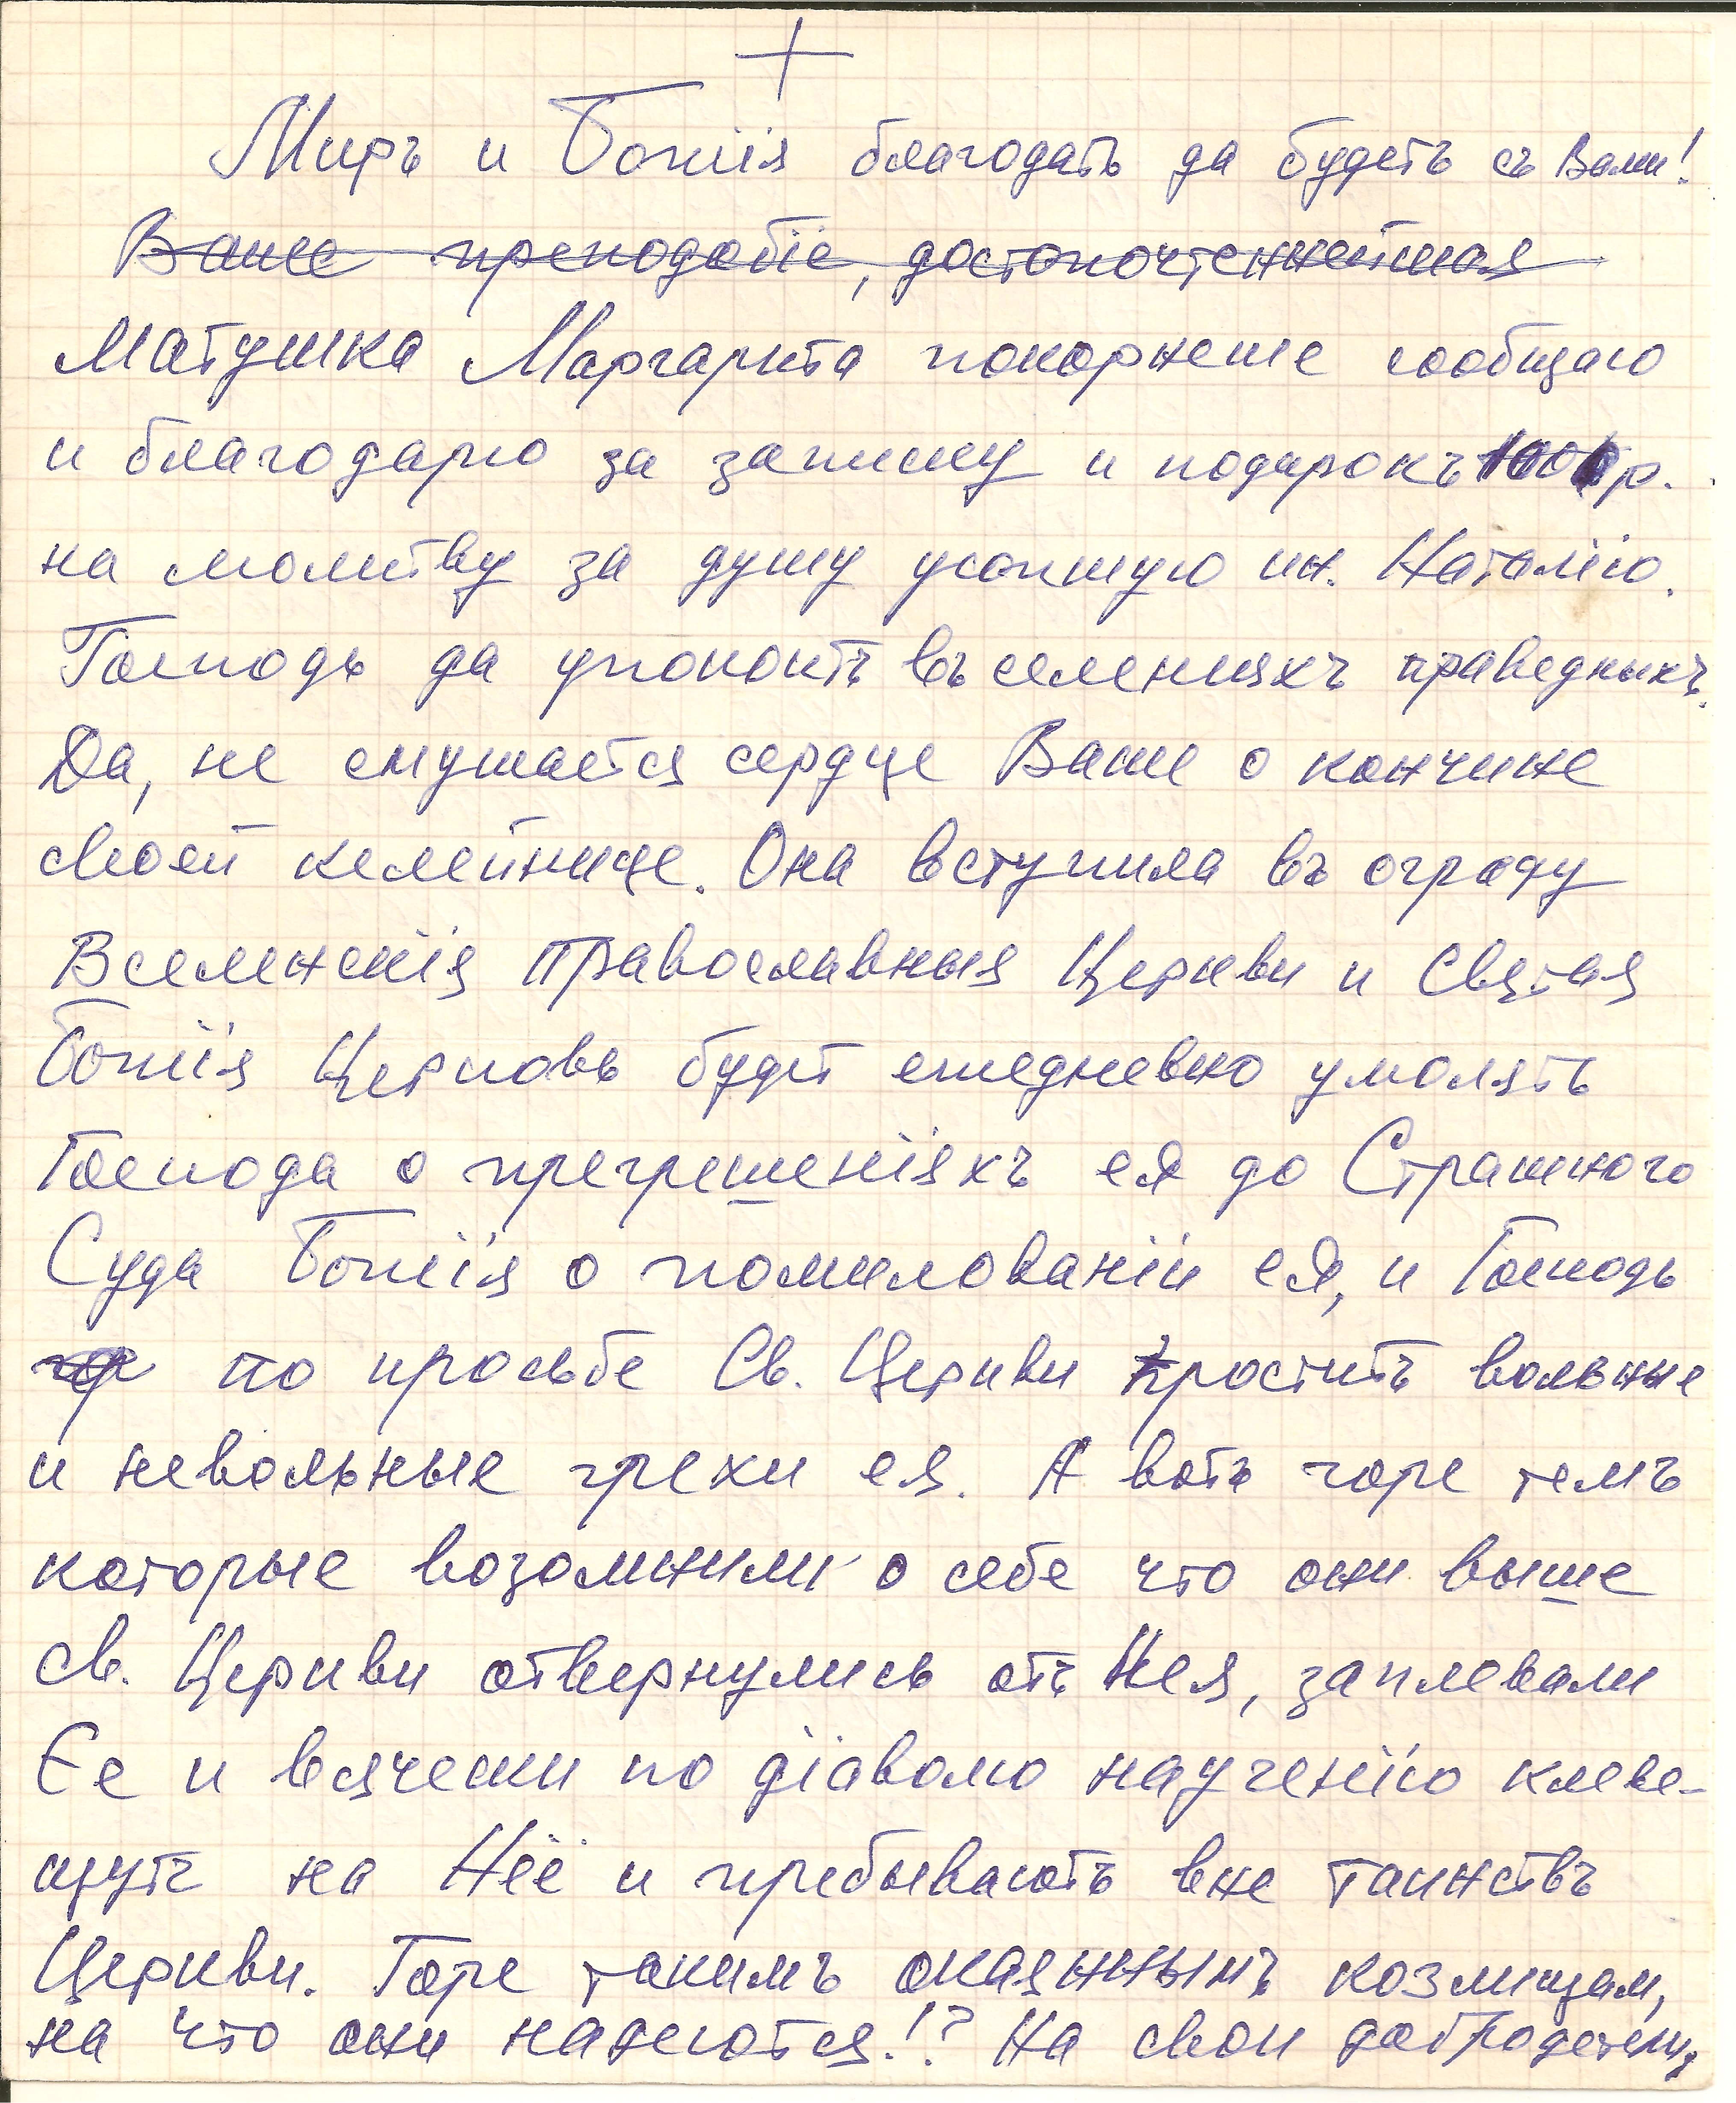 Миръ и Божiя благодать да будетъ съ Вами!
Ваше преподобiе, достопочтеннейшая
Матушка Маргарита покорнеше сообщаю
и благодарю за записку и подарокъ р.
на молитву за душу усопшую ин. Наталiю.
Господь да упокоитъ въ селенияхъ праведныхъ.
Да, не смущается сердце Ваше о кончине
своей келейнице. Она вступила въ ограду
Вселенскiя Православныя Церкви и Святая
Божiя Церковь будет ежедневно умолять
Господа о прегрешенiяхъ ея до Страшного
Суда Божiя о помилованiи ея, и Господь
по просьбе Св. Церкви проститъ вольные
и невольные грехи ея. А вотъ горе темъ
которые возомнили о себе что они выше
св. Церкви отвернулись отъ Нея, заплевали
Ее и всячески по дiаволю наученiю клеве-
щутъ на Нёё и пребываютъ вне таинствъ
Церкви. Горе такимъ окаяннымъ козлищам,
на что они надеются!? На свои добродетели,